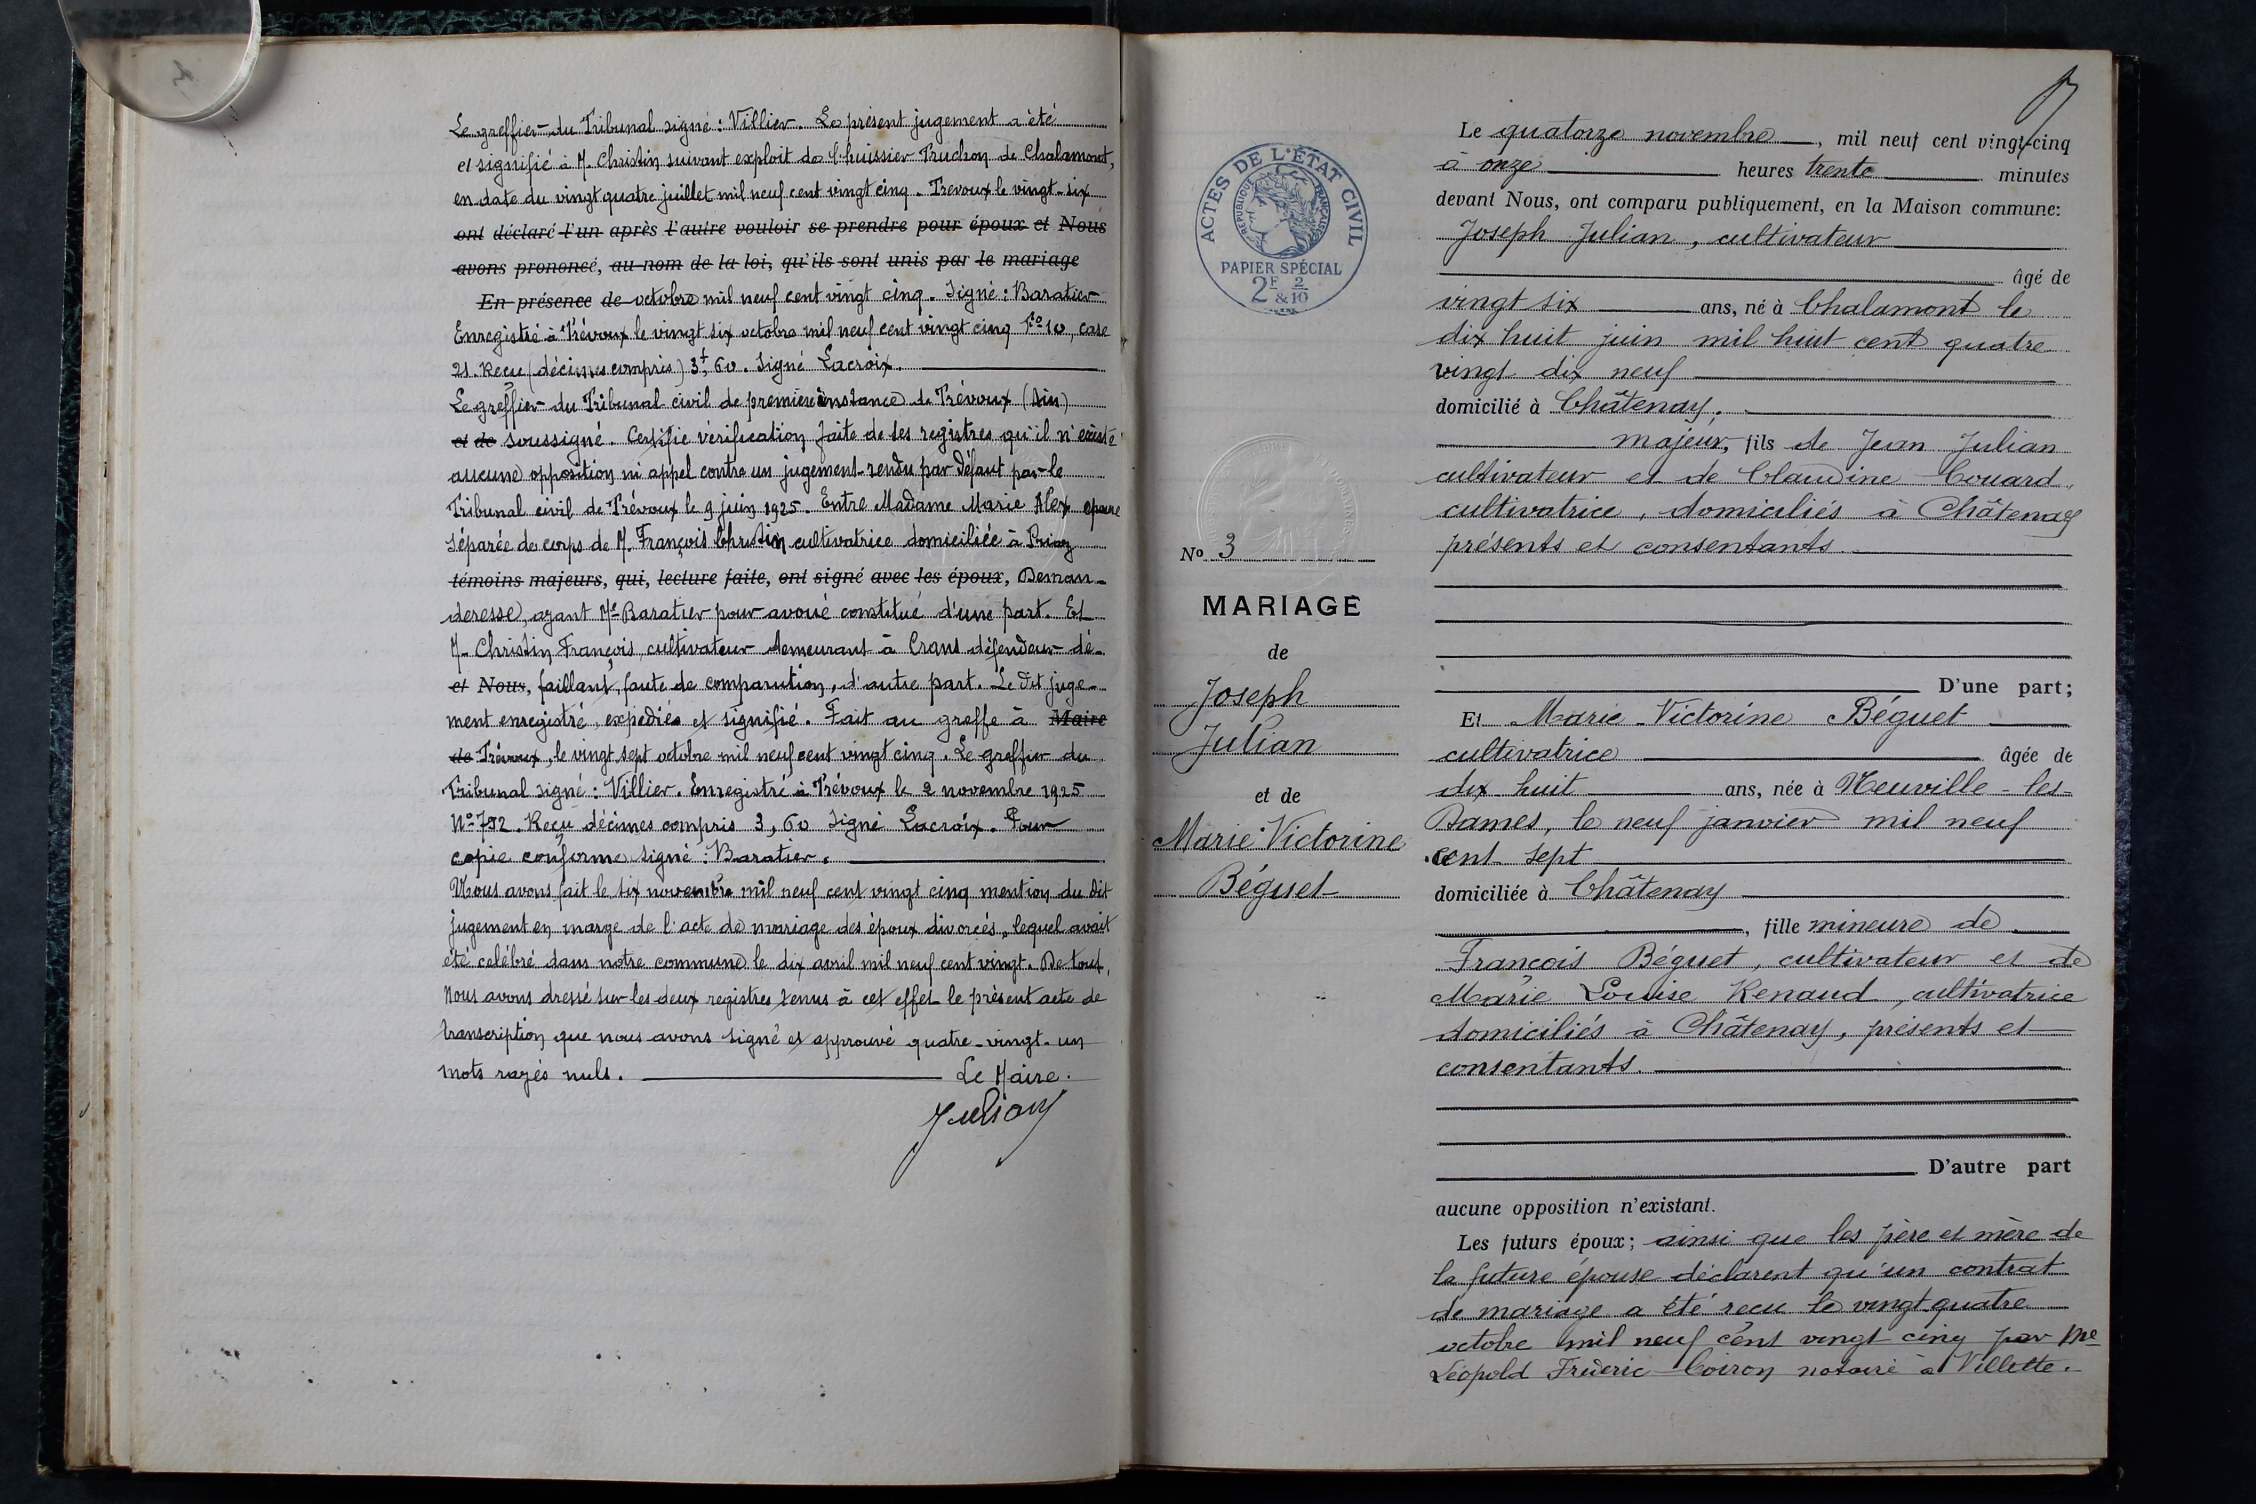 Le greffier du Tribunal signé : Villier. Le présent jugement a été
et signifié à M. Christin suivant exploit de l'huissier Truchon de Chalamont,
en date du vingt quatre juillet mil neuf cent vingt cinq. Trévoux le vingt-six
ont déclaré l'un après l'autre vouloir se prendre pour époux et Nous
avons prononcé, au nom de la loi, qu'ils sont unis par le mariage
En présence de octobre mil neuf cent vingt cinq. Signé : Baratier
Enregistré à Trévoux le vingt six octobre mil neuf cent vingt cinq Fo 10, case
21. Reçu (décimes compris) 3f, 60. Signé Lacroix.
Le greffier du Tribunal civil de première instance de Trévoux (Ain)
et de soussigné. Certifie vérification faite de ses registres qu'il n'existe
aucune opposition ni appel contre un jugement rendu par défaut par le
Tribunal civil de Trévoux le 9 juin 1925. Entre Madame Marie Alex épouse
séparée de corps de M. François Christin cultivatrice domiciliée à Priay
témoins majeurs, qui, lecture faite, ont signé avec les époux, Deman-
deresse, ayant Me Baratier pour avoué constitué d'une part. Et
M. Christin François, cultivateur demeurant à Crans défendeur dé-
et Nous, faillant, faute de comparution, d'autre part. Le dit juge-
ment enregistré, expédié et signifié. Fait au greffe à Maire
de Trévoux, le vingt sept octobre mil neuf cent vingt cinq. Le greffier du
Tribunal signé : Villier. Enregistré à Trévoux le 2 novembre 1925
No 792. Reçu décimes compris 3,60 signé Lacroix. Pour
copie conforme signé : Baratier.
Nous avons fait le six novembre mil neuf cent vingt cinq mention du dit
jugement en marge de l'acte de mariage des époux divorcés, lequel avait
été célébré dans notre commune le dix avril mil neuf cent vingt. De tout,
Nous avons dressé sur les deux registres tenus à cet effet le présent acte de
transcription que nous avons signé et approuvé quatre-vingt-un
mots rayés nuls. Le Maire.
Julian
ACTES DE L'ÉTAT CIVIL
RÉPUBLIQUE FRANÇAISE
PAPIER SPÉCIAL
2F 2
& 10
No 3
MARIAGE
de
Joseph
Julian
et de
Marie Victorine
Béguet
Le quatorze novembre, mil neuf cent vingt-cinq
à onze heures trente minutes
devant Nous, ont comparu publiquement, en la Maison commune:
Joseph Julian, cultivateur
âgé de
vingt six ans, né à Chalamont le
dix huit juin mil huit cent quatre
vingt dix neuf
domicilié à Châtenay,
majeur, fils de Jean Julian
cultivateur et de Claudine Couard,
cultivatrice, domiciliés à Châtenay
présents et consentants
D'une part;
Et Marie-Victorine Béguet
cultivatrice âgée de
dix huit ans, née à Neuville-les-
Dames, le neuf janvier mil neuf
cent sept
domiciliée à Châtenay
, fille mineure de
François Béguet, cultivateur et de
Marie Louise Renaud, cultivatrice
domiciliés à Châtenay, présents et
consentants.
D'autre part
aucune opposition n'existant.
Les futurs époux; ainsi que les père et mère de
la future épouse déclarent qu'un contrat
de mariage a été reçu le vingt quatre
octobre mil neuf cent vingt cinq par Me
Léopold Frédéric Coiron notaire à Villette.